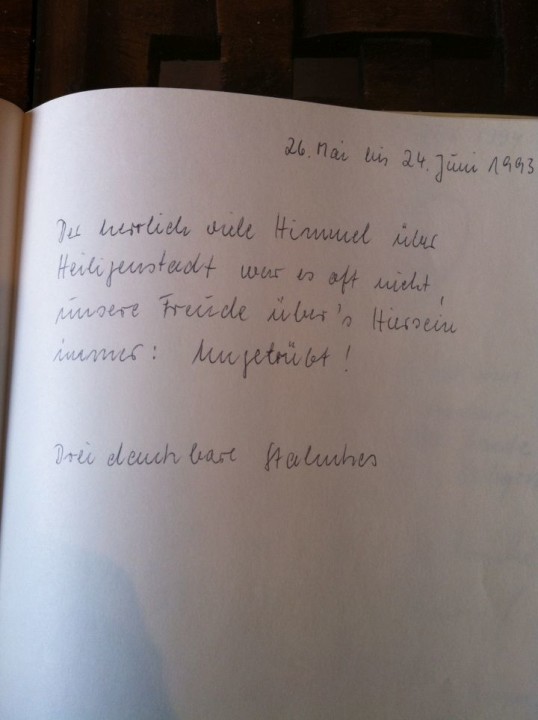 26. Mai bis 24. Juni 1993
Der herrlich viele Himmel über
Heiligenstadt war es oft nicht,
unsere Freude über's Hiersein
immer: Ungetrübt!
Drei dankbare